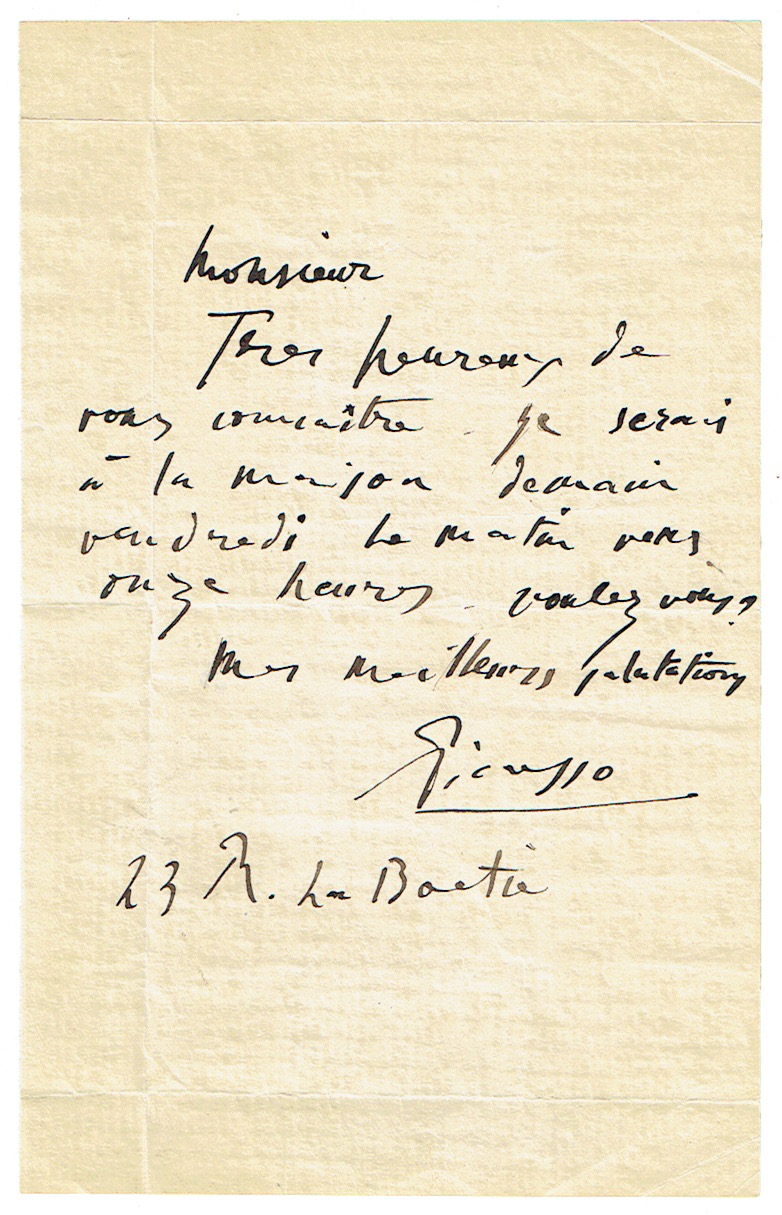 Monsieur
Tres heureux de
vous connaitre je serais
à la maison demain
vendredi le matin vers
onze heures voulez vous?
Mes meilleurs salutations
Picasso
23 R. La Boetie